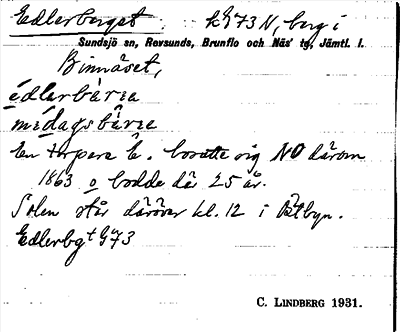 Edlerberget. k. G73 N, berg i
Sundsjö sn, Revsunds, Brunflo och Näs' tg, Jämtl. l.
Binnäset,
èdlerbærɛ
mɛ́dagsbærɛ
En torpare E. bosatte sig NO därom
1863 o bodde där 25 år.
Solen står däröver kl. 12 i Östbyn.
Edlerbgt G73
C. LINDBERG 1931.